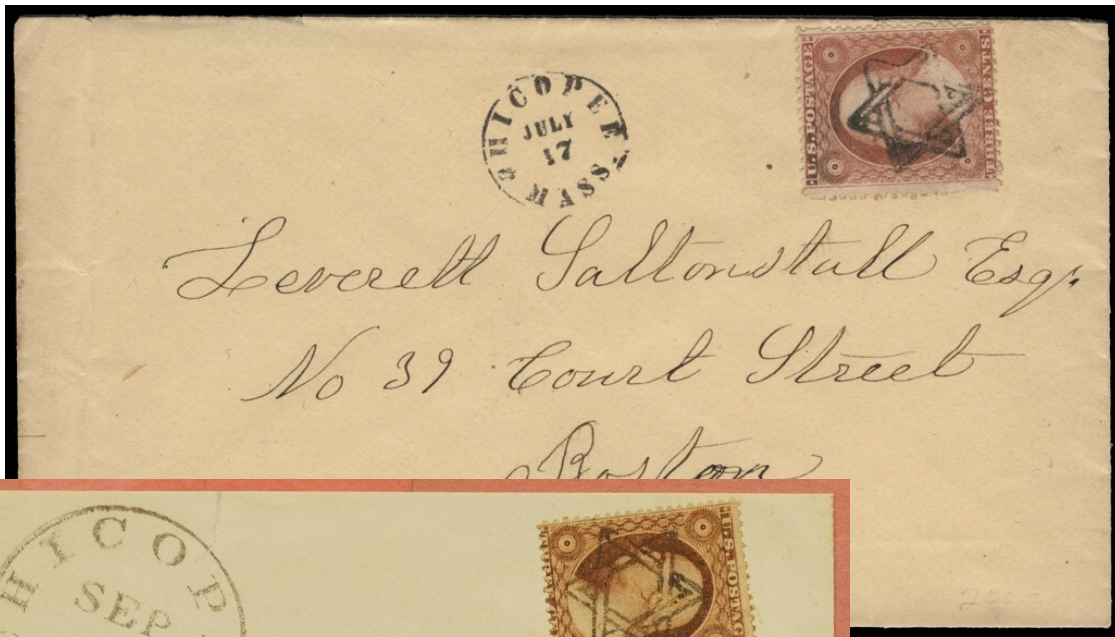 CHICOPEE
JULY
17
MASS.
U.S. POSTAGE
THREE CENTS
Leverett Saltonstall Esqr.
No 39 Court Street
Boston
HICOP
SEP
U.S. POSTAGE